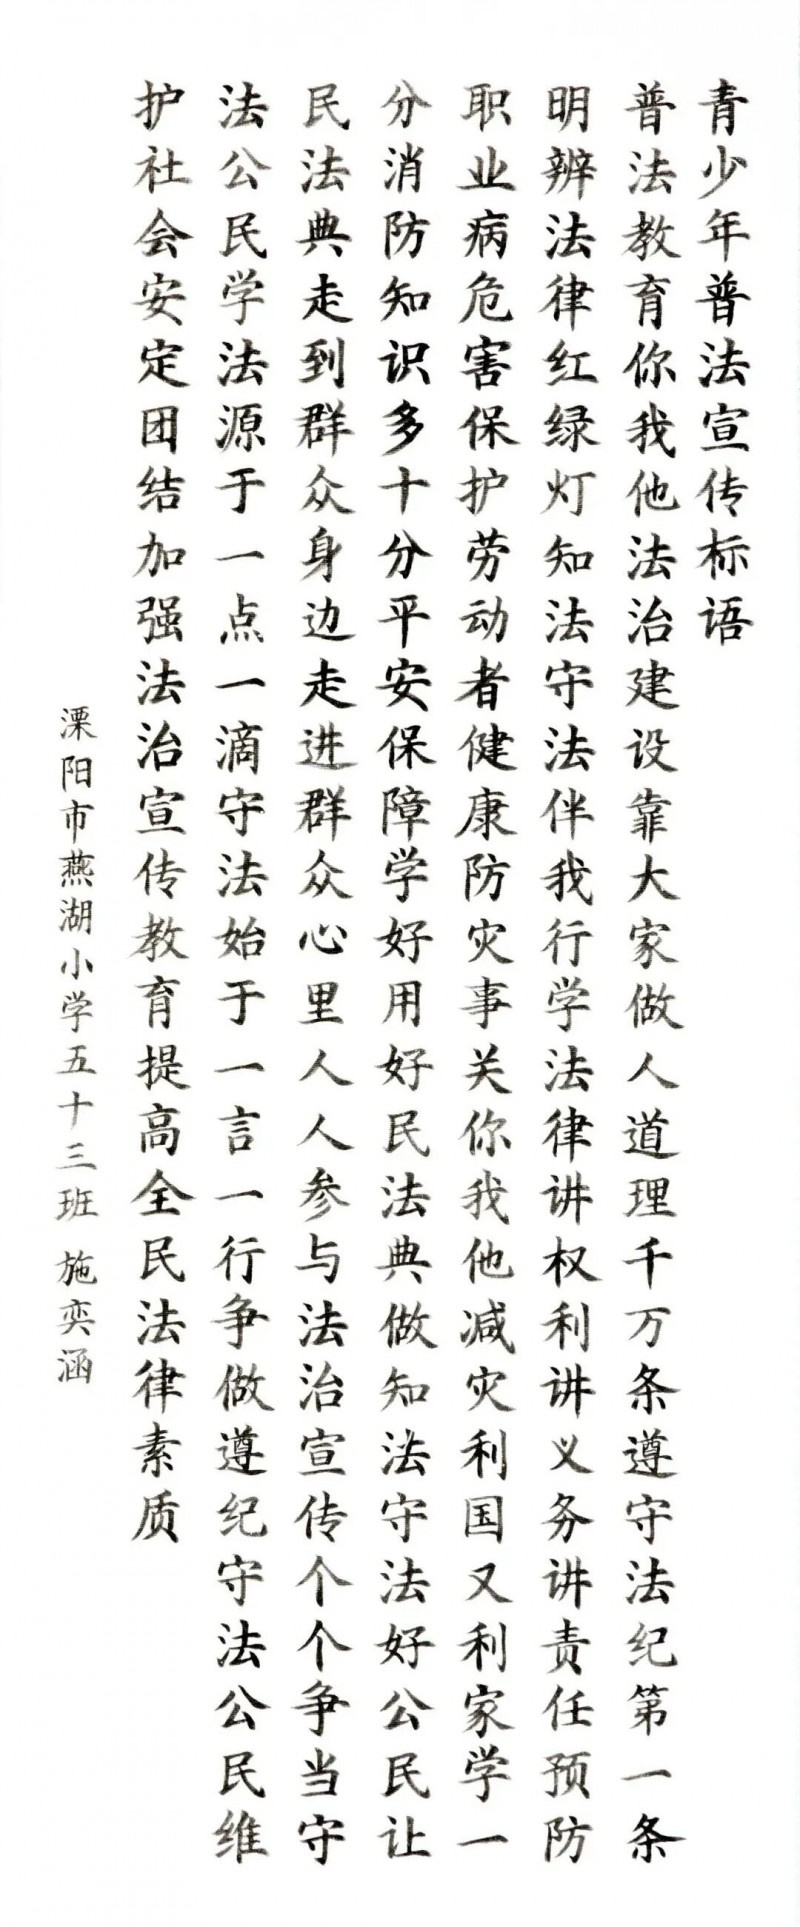 青少年普法宣传标语
普法教育你我他法治建设靠大家做人道理千万条遵守法纪第一条
明辨法律红绿灯知法守法伴我行学法律讲权利讲义务讲责任预防
职业病危害保护劳动者健康防灾事关你我他减灾利国又利家学一
分消防知识多十分平安保障学好用好民法典做知法守法好公民让
民法典走到群众身边走进群众心里人人参与法治宣传个个争当守
法公民学法源于一点一滴守法始于一言一行争做遵纪守法公民维
护社会安定团结加强法治宣传教育提高全民法律素质
溧阳市燕湖小学五十三班 施奕涵